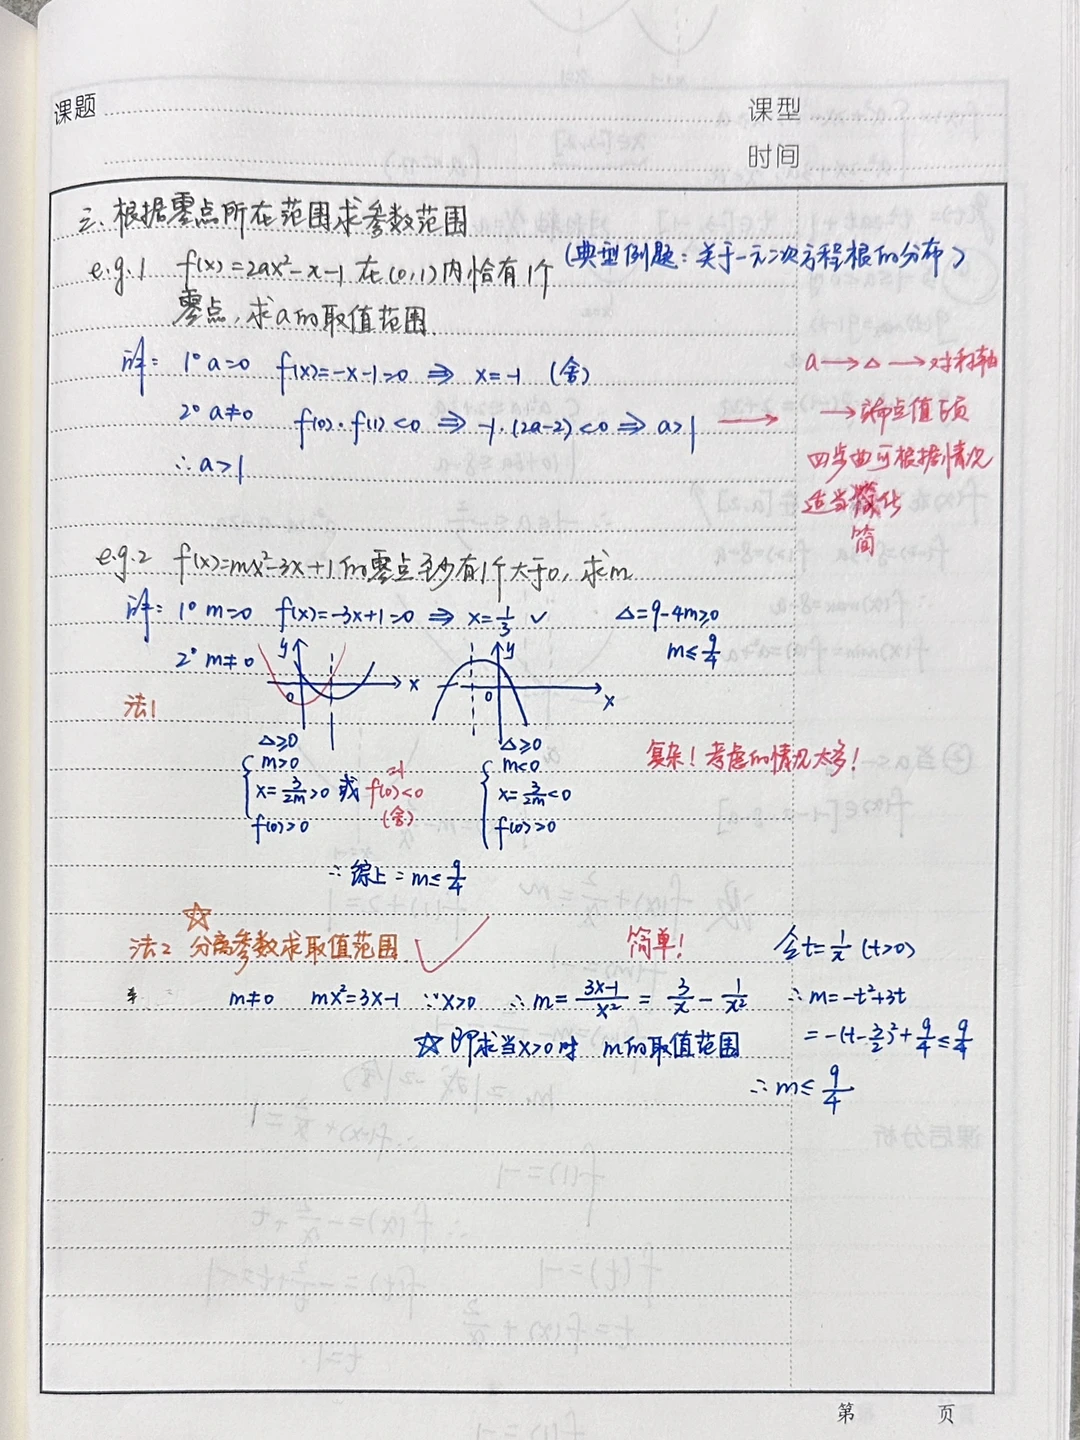 课题
课型
时间
三、根据零点所在范围求参数范围
e.g.1 f(x)=2ax²-x-1 在(0,1)内恰有1个
(典型例题：关于一元二次方程根的分布)
零点,求a的取值范围
解: 1° a=0 f(x)=-x-1=0 ⇒ x=-1 (舍)
2° a≠0 f(0)·f(1)<0 ⇒ -1·(2a-2)<0 ⇒ a>1 →
∴a>1
a→△→对称轴
→端点值正负
四步曲可根据情况
适当简化
简
e.g.2 f(x)=mx²-3x+1的零点至少有1个大于0,求m
解: 1° m=0 f(x)=-3x+1=0 ⇒ x=1/3 ✓
△=9-4m≥0
2° m≠0
m≤9/4
y
x
0
y
x
0
法1
△≥0
m>0
x=3/2m>0 或 f(0)<0
=1
(舍)
f(0)>0
△≥0
m<0
x=3/2m<0
f(0)>0
复杂！考虑的情况太多！
∴综上：m≤9/4
☆
法2 分离参数求取值范围 ✓
简单!
m≠0 mx²=3x-1 ∵x>0 ∴m=(3x-1)/x²=3/x-1/x²
☆ 即求当x>0时 m的取值范围
令t=1/x (t>0)
∴m=-t²+3t
=-(t-3/2)²+9/4≤9/4
∴m≤9/4
第 页